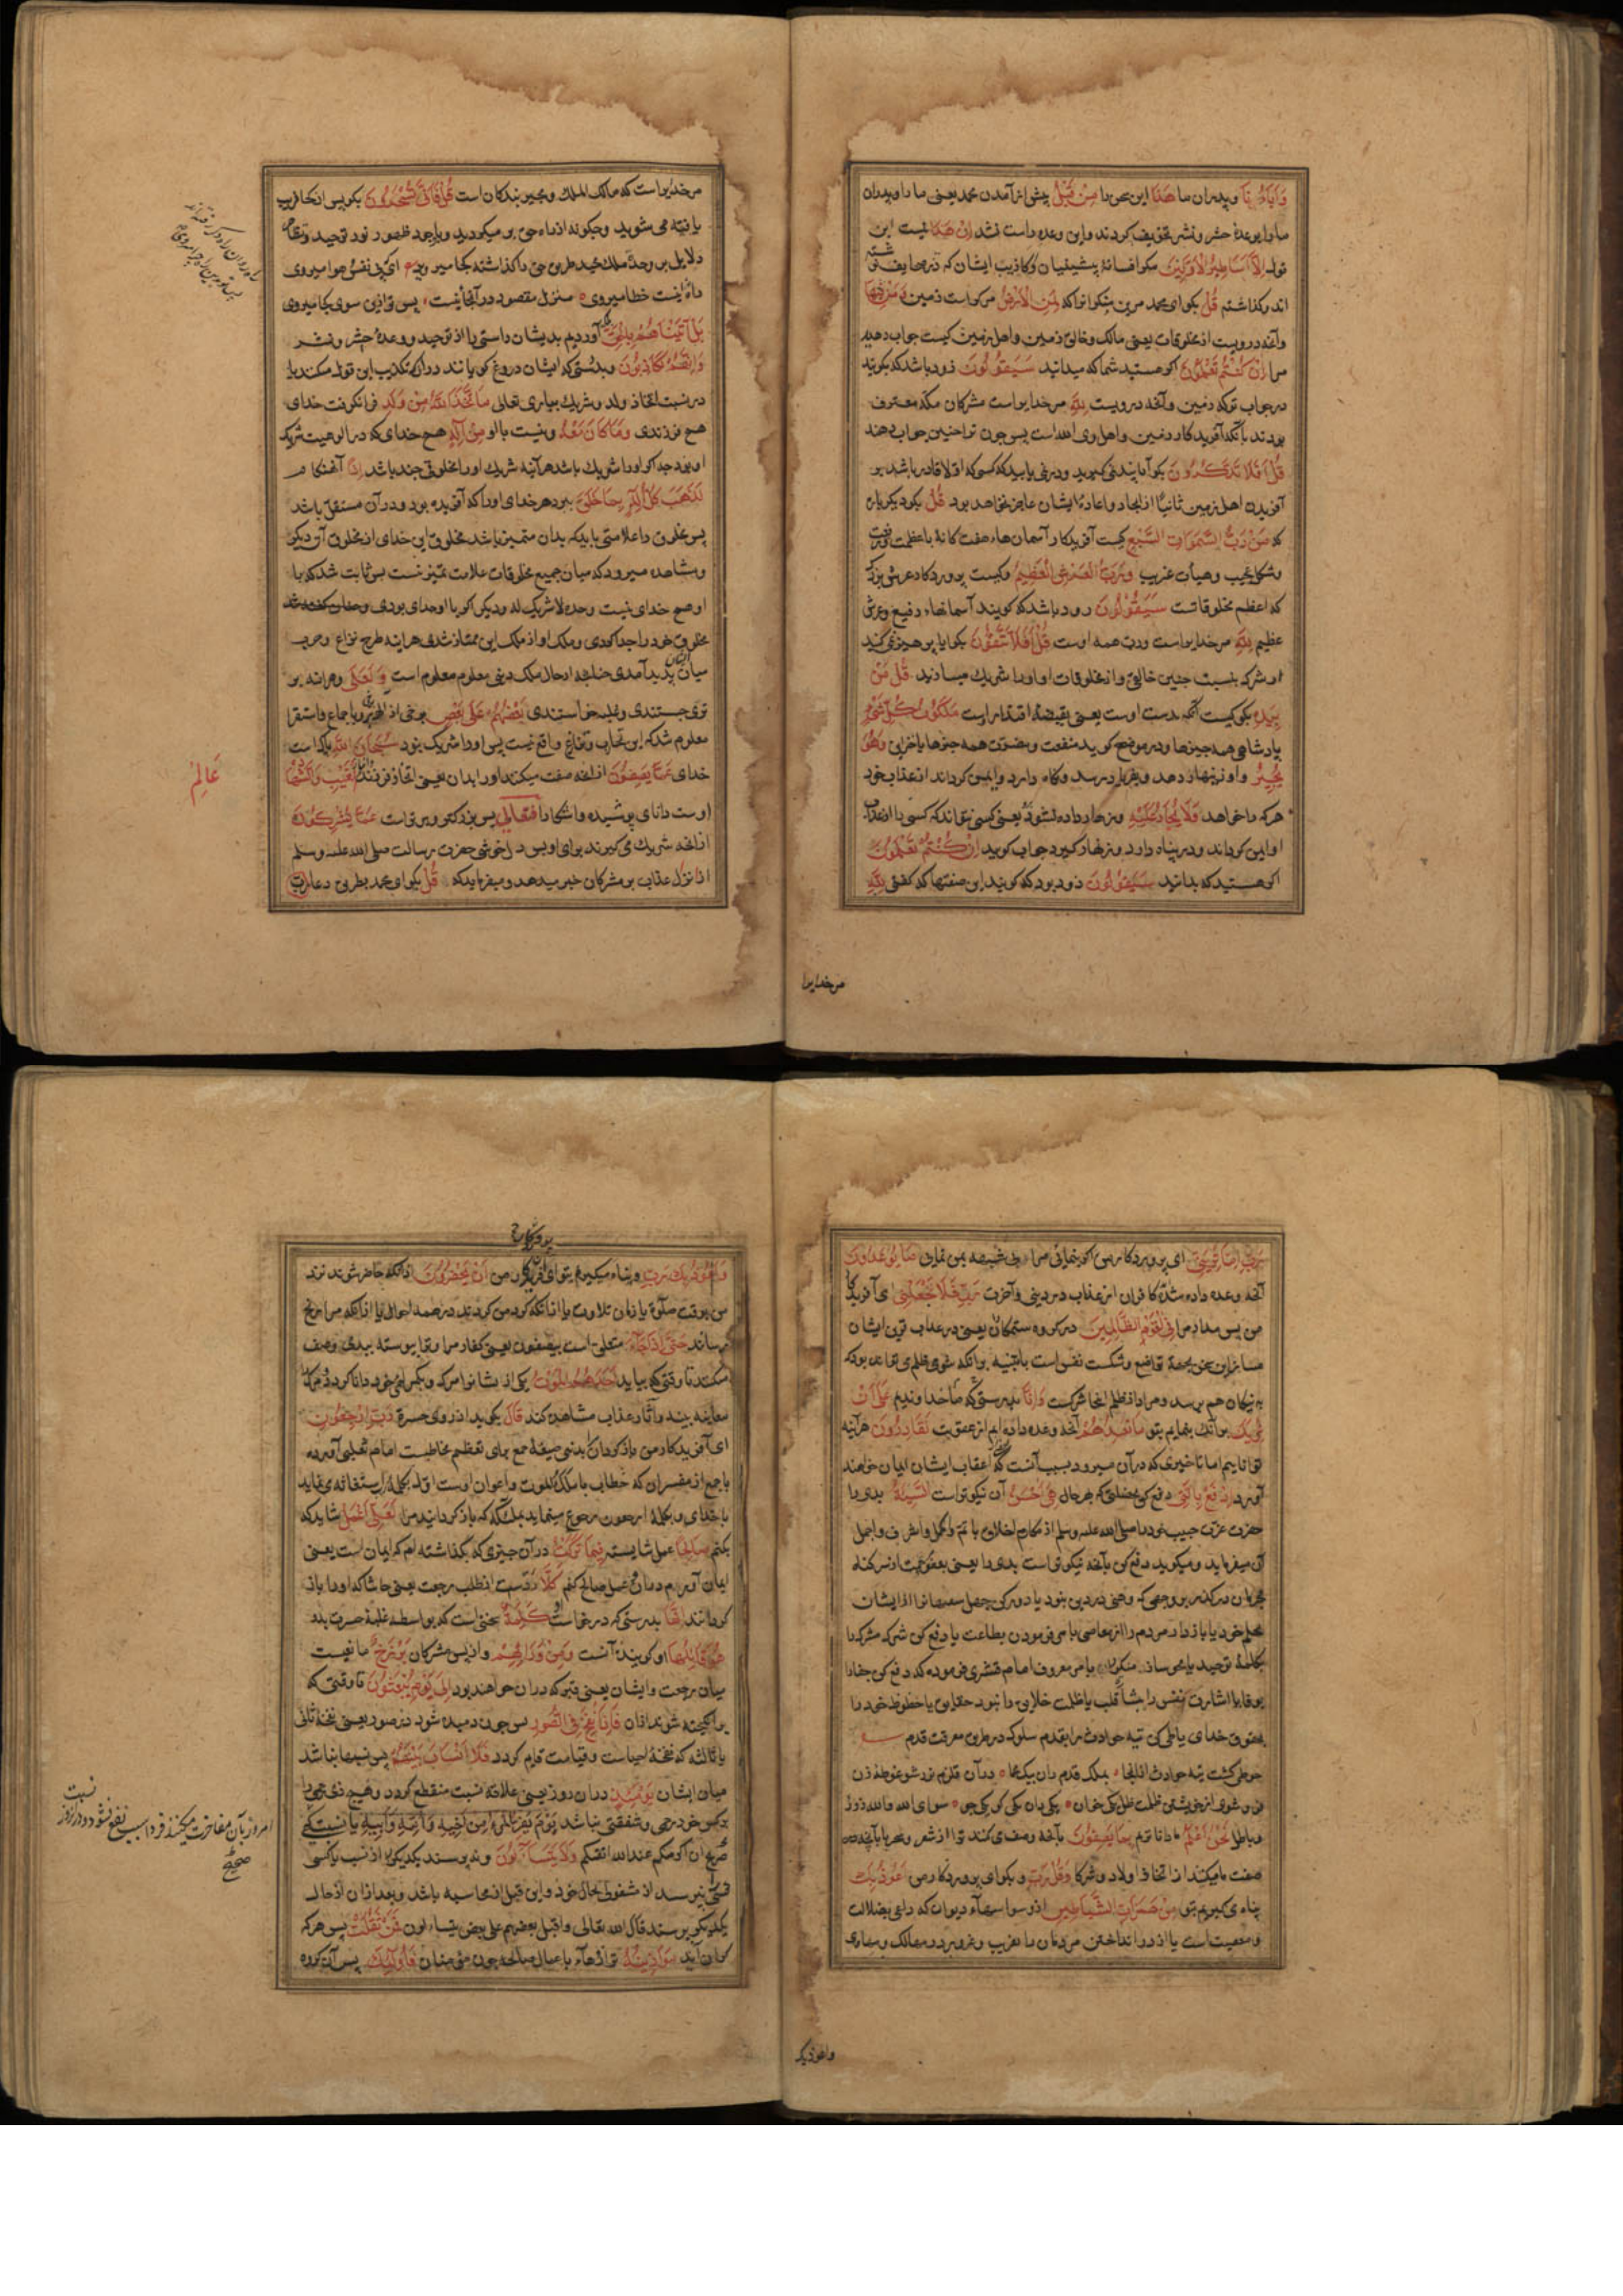 وَاٰبَاؤُنَا وپدران ما هٰذَا این سخن را مِنْ قَبْلُ پیش از آمدن محمد یعنی ما را و پدران
ما را بوعدهٔ حشر و نشر تخویف کردند و این وعده راست نشد اِنْ هٰذَا نیست این
قول اِلَّا اَسَاطِیرُ الْاَوَّلِینَ مکر افسانهٔ پیشینیان و اکاذیب ایشان که در صحایف نوشته
اند و کذاشته قُلْ بکو ای محمد مر منکرانرا که لِمَنِ الْاَرْضُ مر کراست زمین وَمَنْ فِیهَا
وآنچه دروست از مخلوقات یعنی مالک و خالق زمین و اهل زمین کیست جواب دهید
مرا اِنْ کُنْتُمْ تَعْلَمُونَ اکر هستید شما که میدانید سَیَقُولُونَ زود باشد که بکویند
در جواب تو که زمین وآنچه دروست لِلّٰهِ مر خدایراست مشرکان مکه معترف
بودند بآنکه آفریدکار زمین و اهل وی الله است پس چون ترا چنین جواب دهند
قُلْ اَفَلَا تَذَکَّرُونَ بکو آیا پند نمی کیرید و در نمی یابید که کسی که اولا قادر باشد بر
آفریدن اهل زمین ثانیا از ایجاد و اعادهٔ ایشان عاجز نخواهد بود قُلْ بکو دیکر باره
که مَنْ رَبُّ السَّمٰوَاتِ السَّبْعِ کیست آفریدکار آسمانهاء هفت کانهٔ با عظمت
وشکل عجیب وهیأت غریب وَرَبُّ الْعَرْشِ الْعَظِیمِ وکیست پروردکار عرش بزرک
که اعظم مخلوقاتست سَیَقُولُونَ زود باشد که کویند آسمانهاء رفیع وعرش
عظیم لِلّٰهِ مر خدایراست ورب همه اوست قُلْ اَفَلَا تَتَّقُونَ بکو آیا پرهیز نمی کنید
از شرک بنسبت چنین خالق و از مخلوقات او او را شریک میسازید قُلْ مَنْ
بِیَدِهِ بکو کیست آنکه بدست اوست یعنی بقبضهٔ اقتدار اوست مَلَکُوتُ کُلِّ شَیْءٍ
پادشاهی همه چیزها ودر موضح کوید منفعت ومضرت همه چیزها یا خزاین وَهُوَ
یُجِیرُ واو زینهار دهد وبفریاد رسد ونکاه دارد وایمن کرداند از عذاب خود
هر که را خواهد وَلَا یُجَارُ عَلَیْهِ وزنهار داده نشود یعنی کسی نتواند که کسی را از عذاب
او ایمن کرداند ودر پناه دارد وزنهار کیرد جواب کوید اِنْ کُنْتُمْ تَعْلَمُونَ
اکر هستید که بدانید سَیَقُولُونَ زود بود که کویند این صفتها که کفتی لِلّٰهِ
مر خدایرا
مر خدایراست که مالک الملک ومجیر بندکان است قُلْ فَاَنّٰی تُسْحَرُونَ بکو پس از کجا فریب
یافته می شوید وچکونه از راه حق بر میکردید وباوجود ظهور نور توحید وتظاهر
دلایل بر وحدت ملک مجید طریق حق را کذاشته کجا میروید
راه اینست خطا میروی منزل مقصود در آنجا نیست پس تو ازین سوی کجا میروی
بَلْ اَتَیْنَاهُمْ بِالْحَقِّ بلکه آوردیم بدیشان راستی را از توحید ووعدهٔ حشر ونشر
وَاِنَّهُمْ لَکَاذِبُونَ وبدرستی که ایشان دروغ کویانند در آنکه تکذیب این قول میکنند یا
در نسبت اتخاذ ولد وشریک بباری تعالی مَا اتَّخَذَ اللّٰهُ مِنْ وَلَدٍ فرا نکرفت خدای
هیچ فرزندی وَمَا کَانَ مَعَهُ ونیست با او مِنْ اِلٰهٍ هیچ خدای که در الوهیت شریک
او بود چه اکر او را شریک باشد هر آینه شریک او را مخلوقی چند باشد اِذًا آنهنکام
لَذَهَبَ کُلُّ اِلٰهٍ بِمَا خَلَقَ ببرد هر خدای اورا که آفریده بود ودر آن مستقل باشد
پس مخلوق را علامتی باید که بدان متمیز باشد مخلوق این خدای از مخلوق آن دیکر
ومشاهده میرود که میان جمیع مخلوقات علامت تمیز نیست پس ثابت شد که با
او هیچ خدای نیست وحده لا شریک له ودیکر اکر با او خدای بودی
مخلوق خود را جدا کردی وملک او از ملک این ممتاز شدی هر آینه طرح نزاع وحرب
میان ایشان پدید آمدی چنانچه از حال ملوک دنیی معلوم است وَلَعَلٰی وهر آینه بر
تری جستندی وغلبه خواستندی بَعْضُهُمْ عَلٰی بَعْضٍ برخی از ایشان بر برخی وباجماع واستقرا
معلوم شد که این تحارب وتنازع واقع نیست پس اورا شریک نبود سُبْحَانَ اللّٰهِ پاکست
خدای عَمَّا یَصِفُونَ از آنچه صفت میکنند اورا بدان یعنی اتخاذ فرزند الْغَیْبِ وَالشَّهَادَةِ
عَالِمِ
اوست دانای پوشیده وآشکارا فَتَعَالٰی پس بزرکتر وبرترست عَمَّا یُشْرِکُونَ
از آنچه شریک می کیرند برای او پس دل خوشی حضرت رسالت صلی الله علیه وسلم
از نزول عذاب بر مشرکان خبر میدهد ومیفرماید که قُلْ بکو ای محمد بطریق دعا رَبِّ
رَبِّ اِمَّا تُرِیَنِّی ای پروردکار من اکر بنمائی مرا وبی شبهه بمن نمایی مَا یُوعَدُونَ
آنچه وعده داده شد کافران از عذاب در دنیی وآخرت رَبِّ فَلَا تَجْعَلْنِی ای آفریدکار
من پس مدار مرا فِی الْقَوْمِ الظَّالِمِینَ در کروه ستمکاران یعنی در عذاب قرین ایشان
مساز این سخن بجهة تواضع وشکست نفس است یا تنبیه برآنکه شومی ظلم می تواند بود که
به نیکان هم برسد ومراد از ظلم اینجا شرکست وَاِنَّا بدرستی که ما خداوندیم عَلٰی اَنْ
نُرِیَکَ برآنکه بنمایم بتو مَا نَعِدُهُمْ آنچه وعده داده ایم از عقوبت لَقَادِرُونَ هر آینه
تواناییم اما تاخیری که در آن میرود بسبب آنست که از اعقاب ایشان ایمان خواهند
آورد اِدْفَعْ بِالَّتِی دفع کن بخصلتی که هِیَ اَحْسَنُ آن نیکوترست السَّیِّئَةَ بدی را
حضرت عزت حبیب خود را صلی الله علیه وسلم از مکارم اخلاق باتم واکمل واشرف واجمل
آن میفرماید ومیکوید دفع کن بآنچه نیکوترست بدی را یعنی بعفو ورحمت از سر کناه
مجرمان در کذر بر وجهی که وهنی در دین نبود یا دور کن جهل سفها را از ایشان
بحلم خود یا باز دار مردم را از معاصی یا می فرمودن بطاعت یا دفع کن شرک مشرک را
بکلمهٔ توحید یا محو ساز منکر را بامر معروف امام قشیری فرموده که دفع کن جفارا
بوفا یا اشارت نفس را بشارت قلب یا ظلمت خلایق را بنور حقایق یا حظوظ خود را
بحقوق خدای یا طی کن تیه حوادث را بقدم سلوک در طریق معرفت قدم
وباطل نَحْنُ اَعْلَمُ ما داناتریم بِمَا یَصِفُونَ بآنچه وصف می کنند ترا از شعر وسحر یا بآنچه
صفت ما میکنند از اتخاذ اولاد وشرکا وَقُلْ رَبِّ وبکو ای پروردکار من اَعُوذُ بِکَ
پناه می کیرم بتو مِنْ هَمَزَاتِ الشَّیَاطِینِ از وسواسهاء دیوان که داعی بضلالت
ومعصیت است یا از در انداختن مردمان را بفریب وغرور در مهالک ومهاوی
واعوذبک
وَاَعُوذُ بِکَ رَبِّ وپناه میکیرم بتو ای آفریدکار من اَنْ یَحْضُرُونِ از آنکه حاضر شوند نزد
من بوقت صلوة یا زمان تلاوت یا از آنکه کرد من کردند در همه احوال یا از آنکه مرا رنج
رسانند حَتّٰی اِذَا جَاءَ متعلق است بیصفون یعنی کفار مرا وترا پیوسته ببدی وصف
میکنند تا وقتی که بیاید اَحَدَهُمُ الْمَوْتُ یکی از ایشانرا مرک
معاینه بیند وآثار عذاب مشاهده کند قَالَ بکوید از روی حسرت رَبِّ ارْجِعُونِ
ای آفریدکار من باز کردان مرا بدنیی صیغهٔ جمع برای تعظیم مخاطبست امام ثعلبی آورده
با جمع از مفسران که خطاب با ملک الموت واعوان اوست اول بکلمهٔ رب استغاثه می نماید
با خدای وبکلمهٔ ارجعون رجوع مینماید بملائکه که باز کردانید مرا لَعَلِّی اَعْمَلُ شاید که
بکنم صَالِحًا عمل شایسته فِیمَا تَرَکْتُ در آن چیزی که بکذاشته ام که ایمان است یعنی
ایمان آورم ودر آن عمل صالح کنم کَلَّا ردست از طلب رجعت یعنی حاشا که او را باز
کردانند اِنَّهَا بدرستی که درخواست او کَلِمَةٌ سخنی است که بواسطه غلبهٔ حسرت بدو
هُوَ قَائِلُهَا او کویندهٔ آنست وَمِنْ وَرَائِهِمْ واز پس مشرکان بَرْزَخٌ مانعیست
میان رجعت وایشان یعنی قبر که در آن خواهند بود اِلٰی یَوْمِ یُبْعَثُونَ تا وقتی که
برانکیخته شوند از آن فَاِذَا نُفِخَ فِی الصُّورِ پس چون دمیده شود در صور یعنی نفخهٔ ثانی
یا ثالثه که نفخهٔ احیاست وقیامت قایم کردد فَلَا اَنْسَابَ بَیْنَهُمْ پس نسبها نباشد
میان ایشان یَوْمَئِذٍ در آن روز یعنی علاقه نسبت منقطع کردد وهیچ ذی رحمی را
بر کس خود رحمی وشفقتی نباشد یَوْمَ یَفِرُّ الْمَرْءُ مِنْ اَخِیهِ وَاُمِّهِ وَاَبِیهِ
ان اکرمکم عند الله اتقیکم وَلَا یَتَسَاءَلُونَ ونپرسند یکدیکر را از نسب یا کسی
کسی را نپرسد از مشغولی بحال خود واین قبل از محاسبه باشد وبعد از آن از حال
یکدیکر پرسند قال الله تعالی واقبل بعضهم علی بعض یتساءلون فَمَنْ ثَقُلَتْ پس هر که
کران آید مَوَازِینُهُ ترازوهاء باعمال صالحه چون مؤمنان فَاُولٰئِکَ پس آن کروه
امروز بآن مفاخرت میکنند فردا سبب نفع نشود ودر آنروز نسبت
صحیح